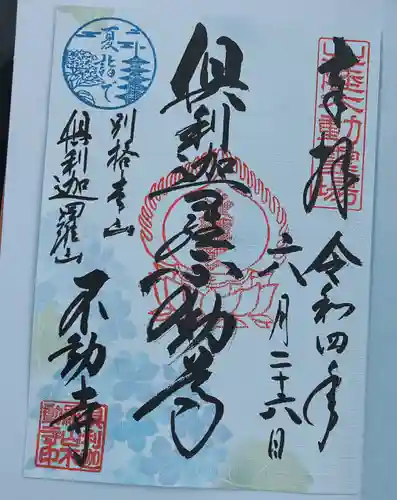 奉拝
令和四年
六月二十六日
倶利迦羅不動尊
別格本山
倶利迦羅山
不動寺
夏詣で